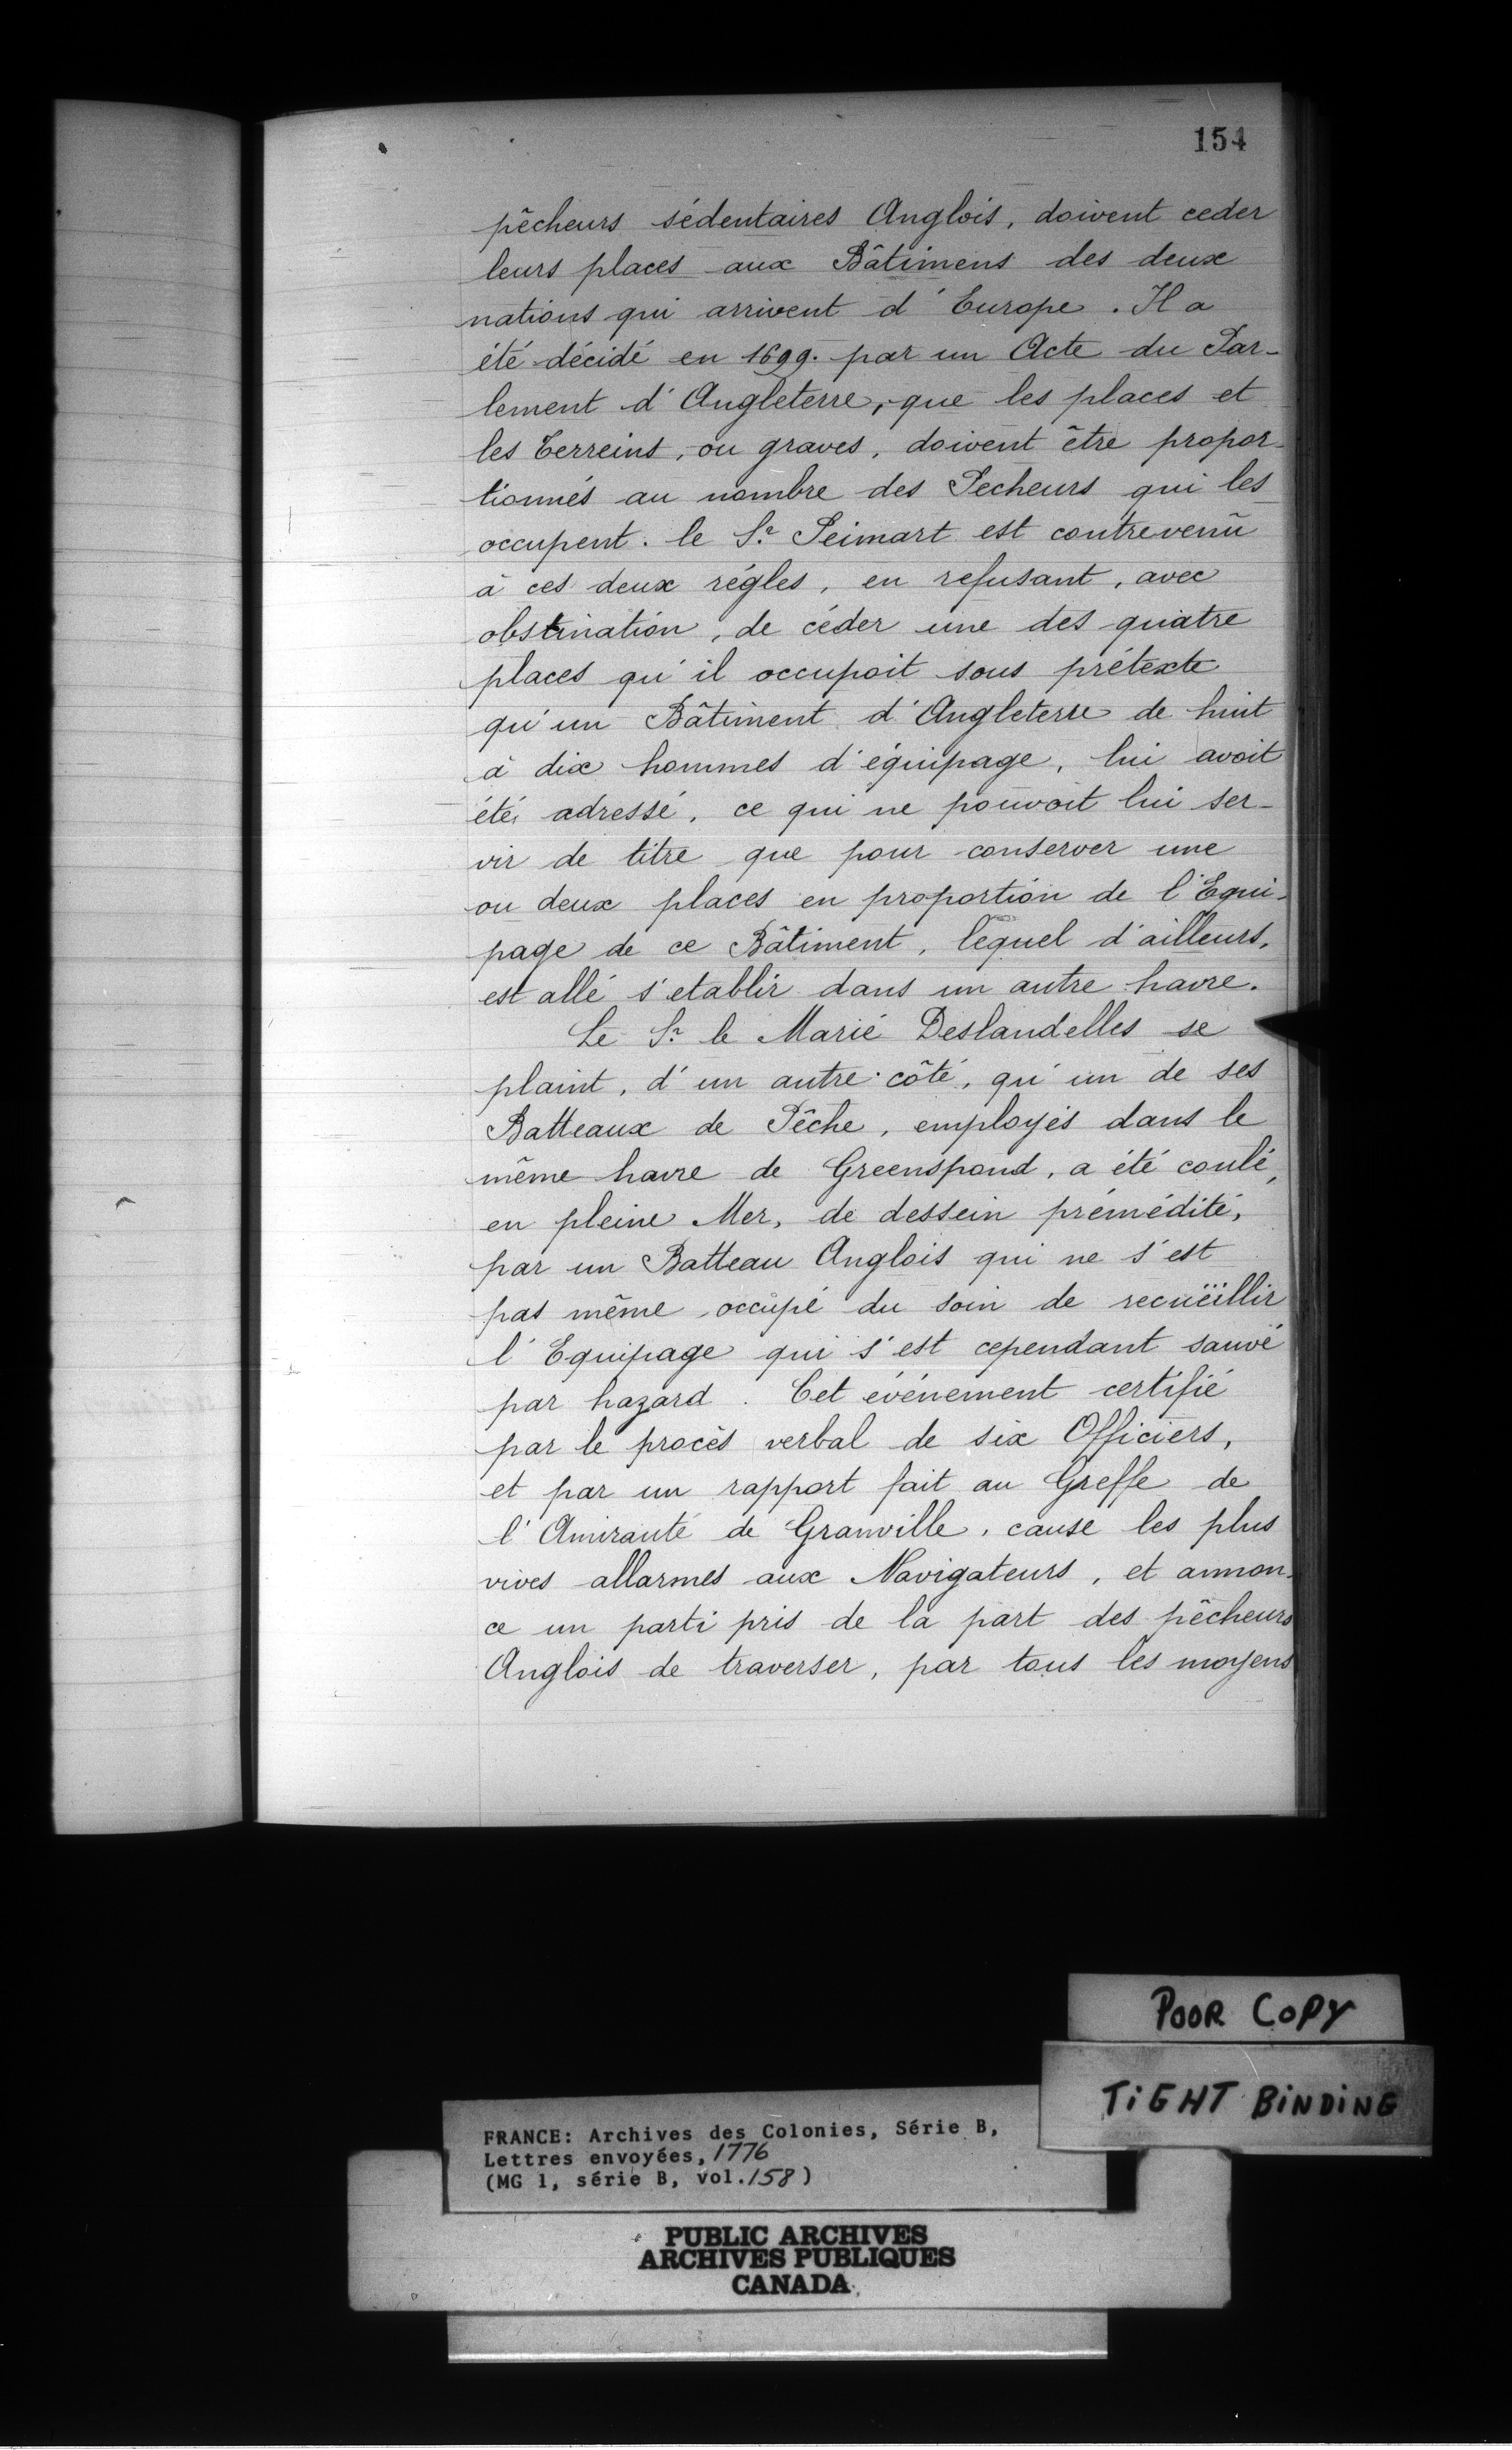 154
pêcheurs sédentaires Anglois, doivent ceder
leurs places aux Bâtimens des deux
nations qui arrivent d'Europe. Il a
été décidé en 1699. par un Acte du Par-
lement d'Angleterre, que les places et
les Terreins, ou graves, doivent être propor-
tionnés au nombre des Pecheurs qui les
occupent. le Sr. Seimart est contrevenû
à ces deux régles, en refusant, avec
obstination, de céder une des quatre
places qu'il occupoit sous prétexte
qu'un Bâtiment d'Angleterre de huit
à dix hommes d'équipage, lui avoit
été adressé, ce qui ne pouvoit lui ser-
vir de titre que pour conserver une
ou deux places en proportion de l'Equi-
page de ce Bâtiment, lequel d'ailleurs,
est allé s'etablir dans un autre havre.
Le Sr. le Marié Deslandelles se
plaint, d'un autre côté, qu'un de ses
Batteaux de Pêche, employés dans le
même havre de Greenspond, a été coulé,
en pleine Mer, de dessein prémédité,
par un Batteau Anglois qui ne s'est
pas même occupé du soin de recüeïllir
l'Equipage qui s'est cependant sauvé
par hazard. Cet événement certifié
par le procès verbal de six Officiers,
et par un rapport fait au Greffe de
l'Amirauté de Granville, cause les plus
vives allarmes aux Navigateurs, et annon-
ce un parti pris de la part des pêcheurs
Anglois de traverser, par tous les moyens
POOR COPY
TIGHT BINDING
FRANCE: Archives des Colonies, Série B,
Lettres envoyées, 1776
(MG 1, série B, vol. 158)
PUBLIC ARCHIVES
ARCHIVES PUBLIQUES
CANADA